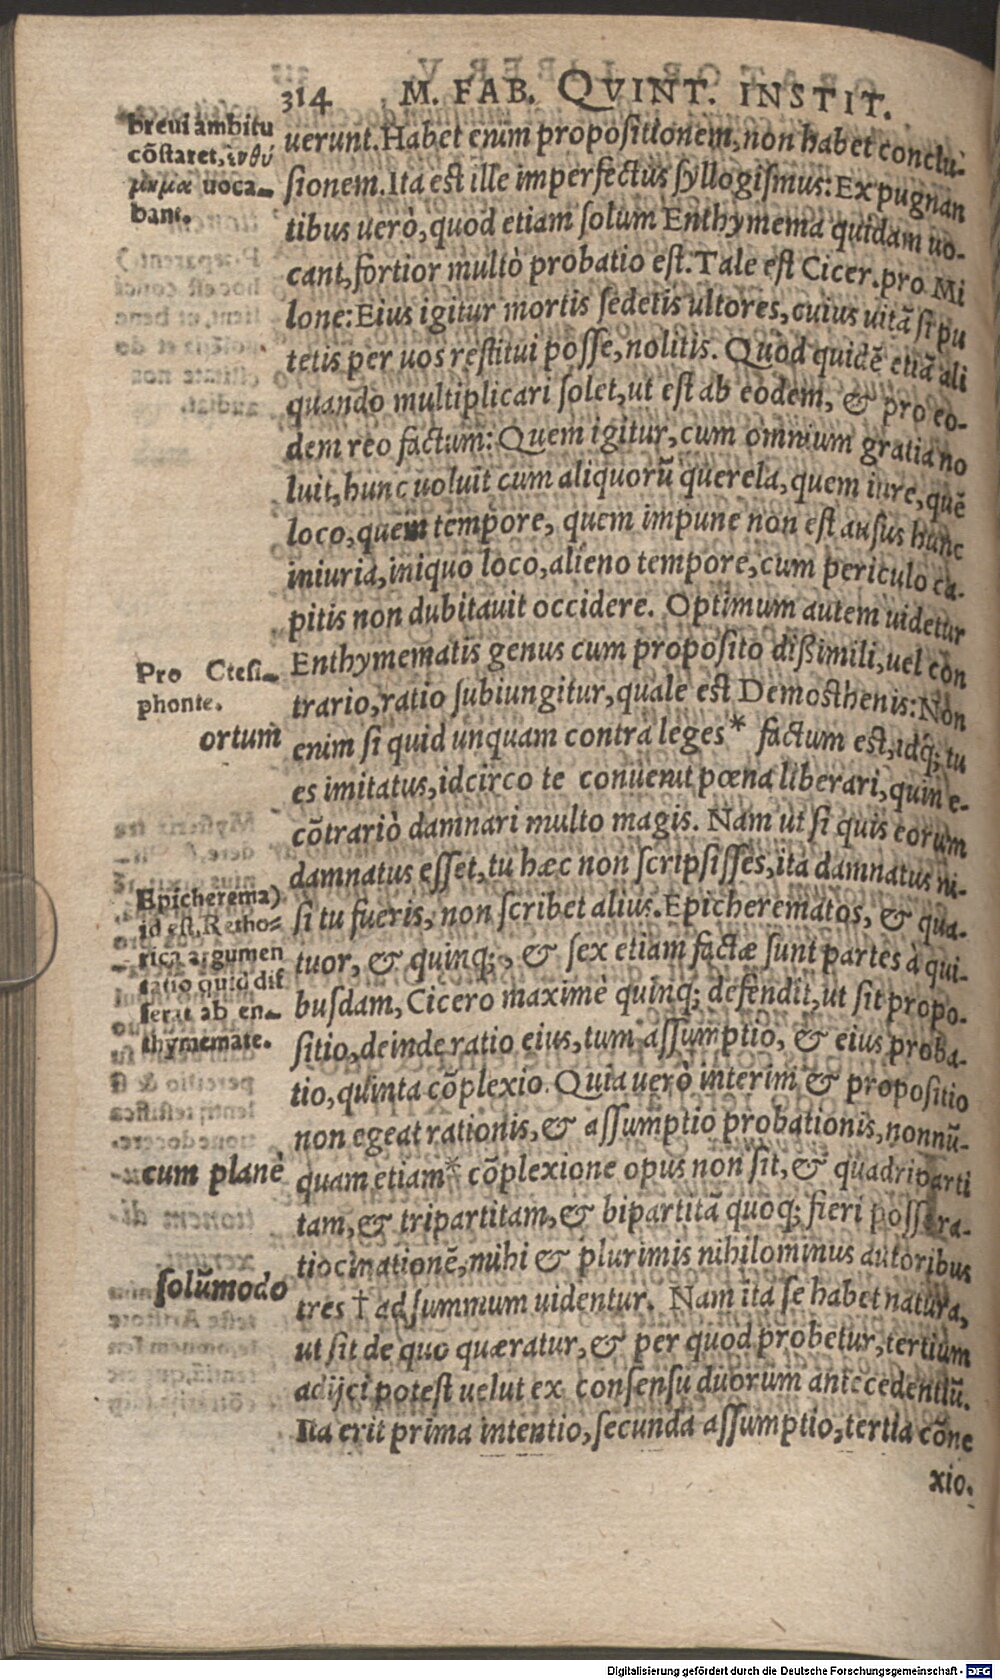 314 M. FAB. QVINT. INSTIT.
breui ambitu
cõstaret, ἐνθύ
μημα uoca-
bant.
uerunt. Habet enim propositionem, non habet conclu-
sionem. Ita est ille imperfectus syllogismus: Ex pugnan
tibus uerò, quod etiam solum Enthymema quidam uo-
cant, fortior multò probatio est. Tale est Cicer. pro Mi
lone: Eius igitur mortis sedetis ultores, cuius uitã si pu
tetis per uos restitui posse, nolitis. Quod quidẽ etiã ali
quando multiplicari solet, ut est ab eodem, & pro eo-
dem reo factum: Quem igitur, cum omnium gratia no
luit, hunc uoluit cum aliquorũ querela, quem iure, quẽ
loco, quem tempore, quem impune non est ausus hunc
iniuria, iniquo loco, alieno tempore, cum periculo ca-
pitis non dubitauit occidere. Optimum autem uidetur
Enthymematis genus cum proposito dißimili, uel con
trario, ratio subiungitur, quale est Demosthenis: Non
enim si quid unquam contra leges* factum est, idq; tu
es imitatus, idcirco te conuenit pœna liberari, quin e-
cõtrariò damnari multo magis. Nam ut si quis eorum
damnatus esset, tu hæc non scripsisses, ita damnatus ni-
si tu fueris, non scribet alius. Epicherematos, & qua-
tuor, & quinq;, & sex etiam factæ sunt partes à qui-
busdam, Cicero maximè quinq; defendit, ut sit propo-
sitio, deinde ratio eius, tum assumptio, & eius proba-
tio, quinta cõplexio. Quia uerò interim & propositio
non egeat rationis, & assumptio probationis, nonnũ-
quam etiam* cõplexione opus non sit, & quadriparti
tam, & tripartitam, & bipartitã quoq; fieri posse ra-
tiocinationẽ, mihi & plurimis nihilominus autoribus
tres † ad summum uidentur. Nam ita se habet natura,
ut sit de quo quæratur, & per quod probetur, tertium
adijci potest uelut ex consensu duorum antecedentiũ.
Ita erit prima intentio, secunda assumptio, tertia cõne
xio.
Pro Ctesi-
phonte.
ortum
Epicherema)
id est, Retho-
rica argumen
tatio quid dif
ferat ab en-
thymemate.
cum planè
solũmodo
Digitalisierung gefördert durch die Deutsche Forschungsgemeinschaft - DFG